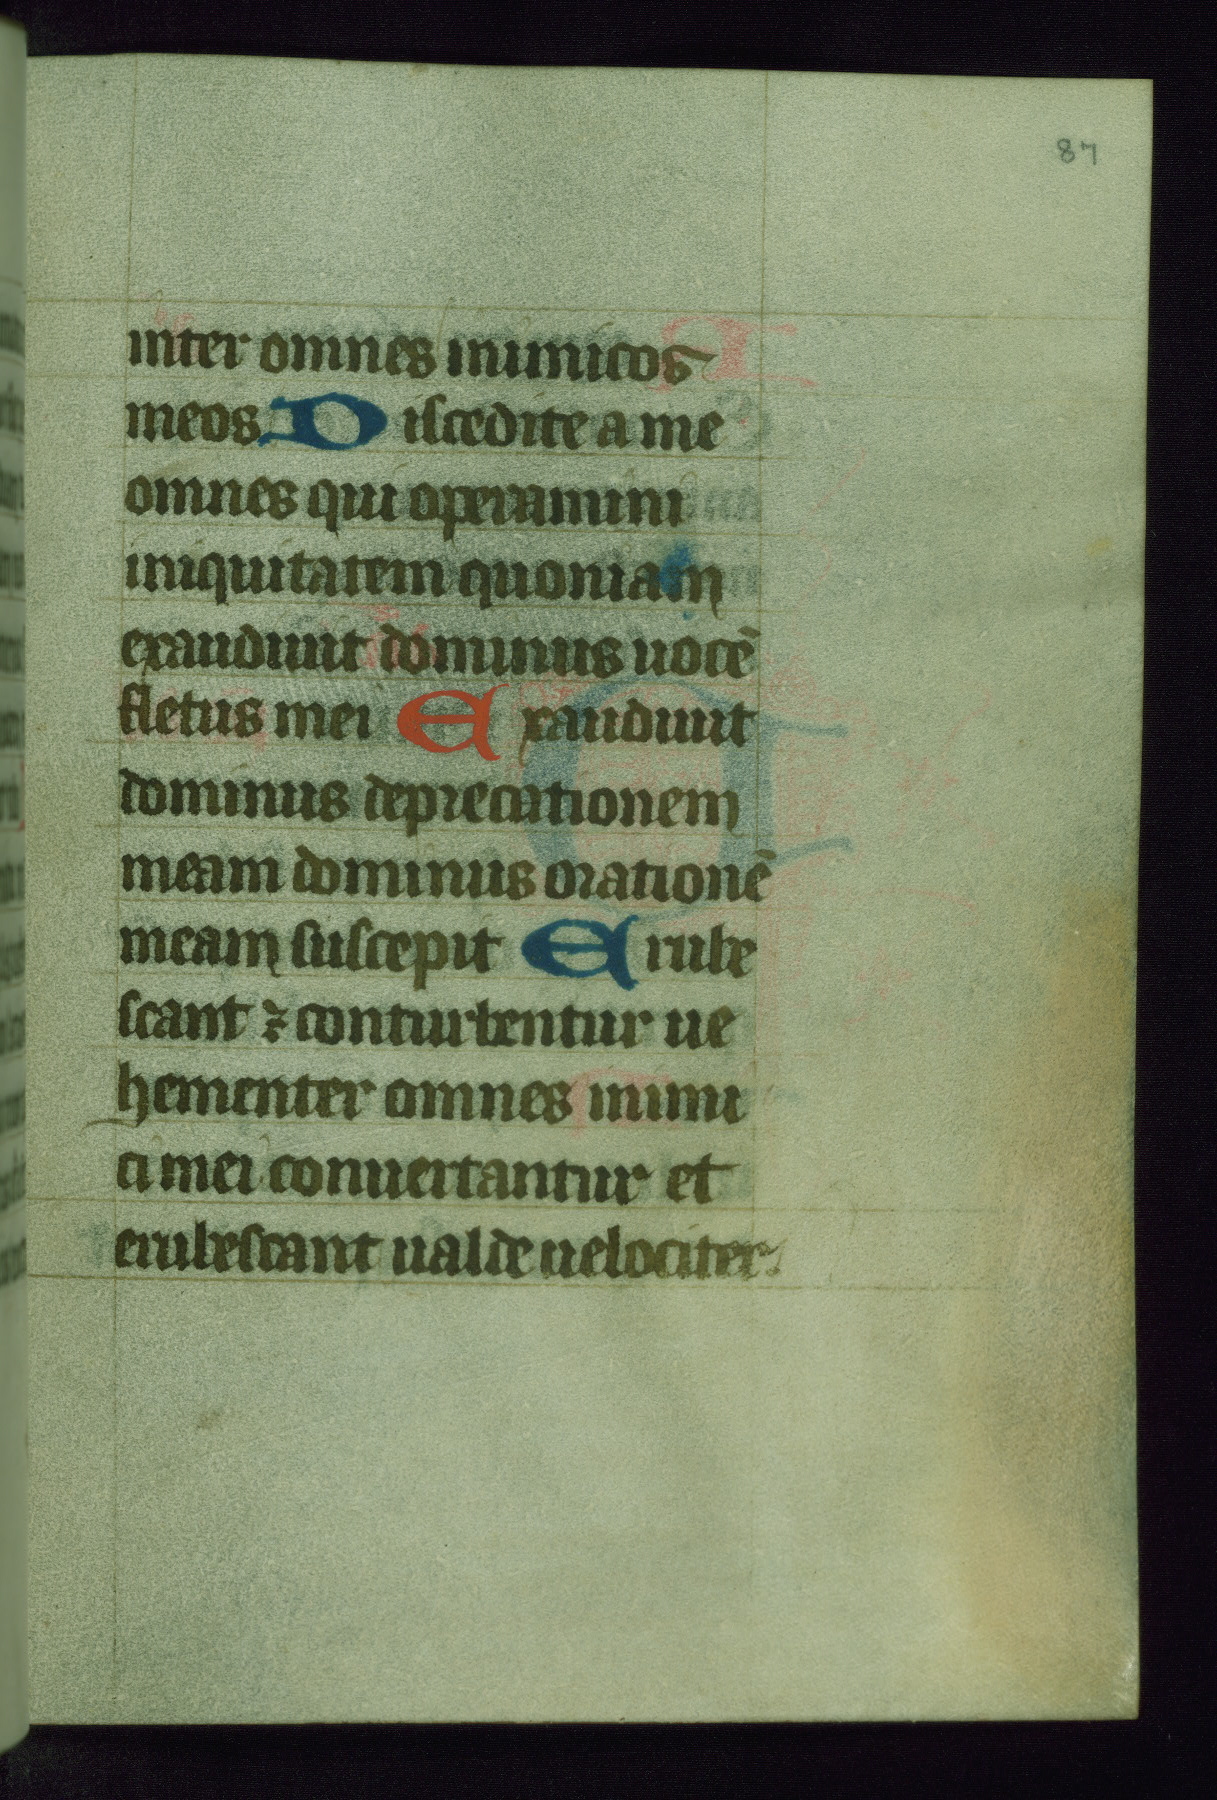 87
inter omnes inimicos
meos Discedite a me
omnes qui operamini
iniquitatem quoniam
exaudiuit dominus uocē
fletus mei Exaudiuit
dominus deprecationem
meam dominus orationē
meam suscepit Erube
scant ⁊ conturbentur ue
hementer omnes inimi
ci mei conuertantur et
erubescant ualde uelociter.